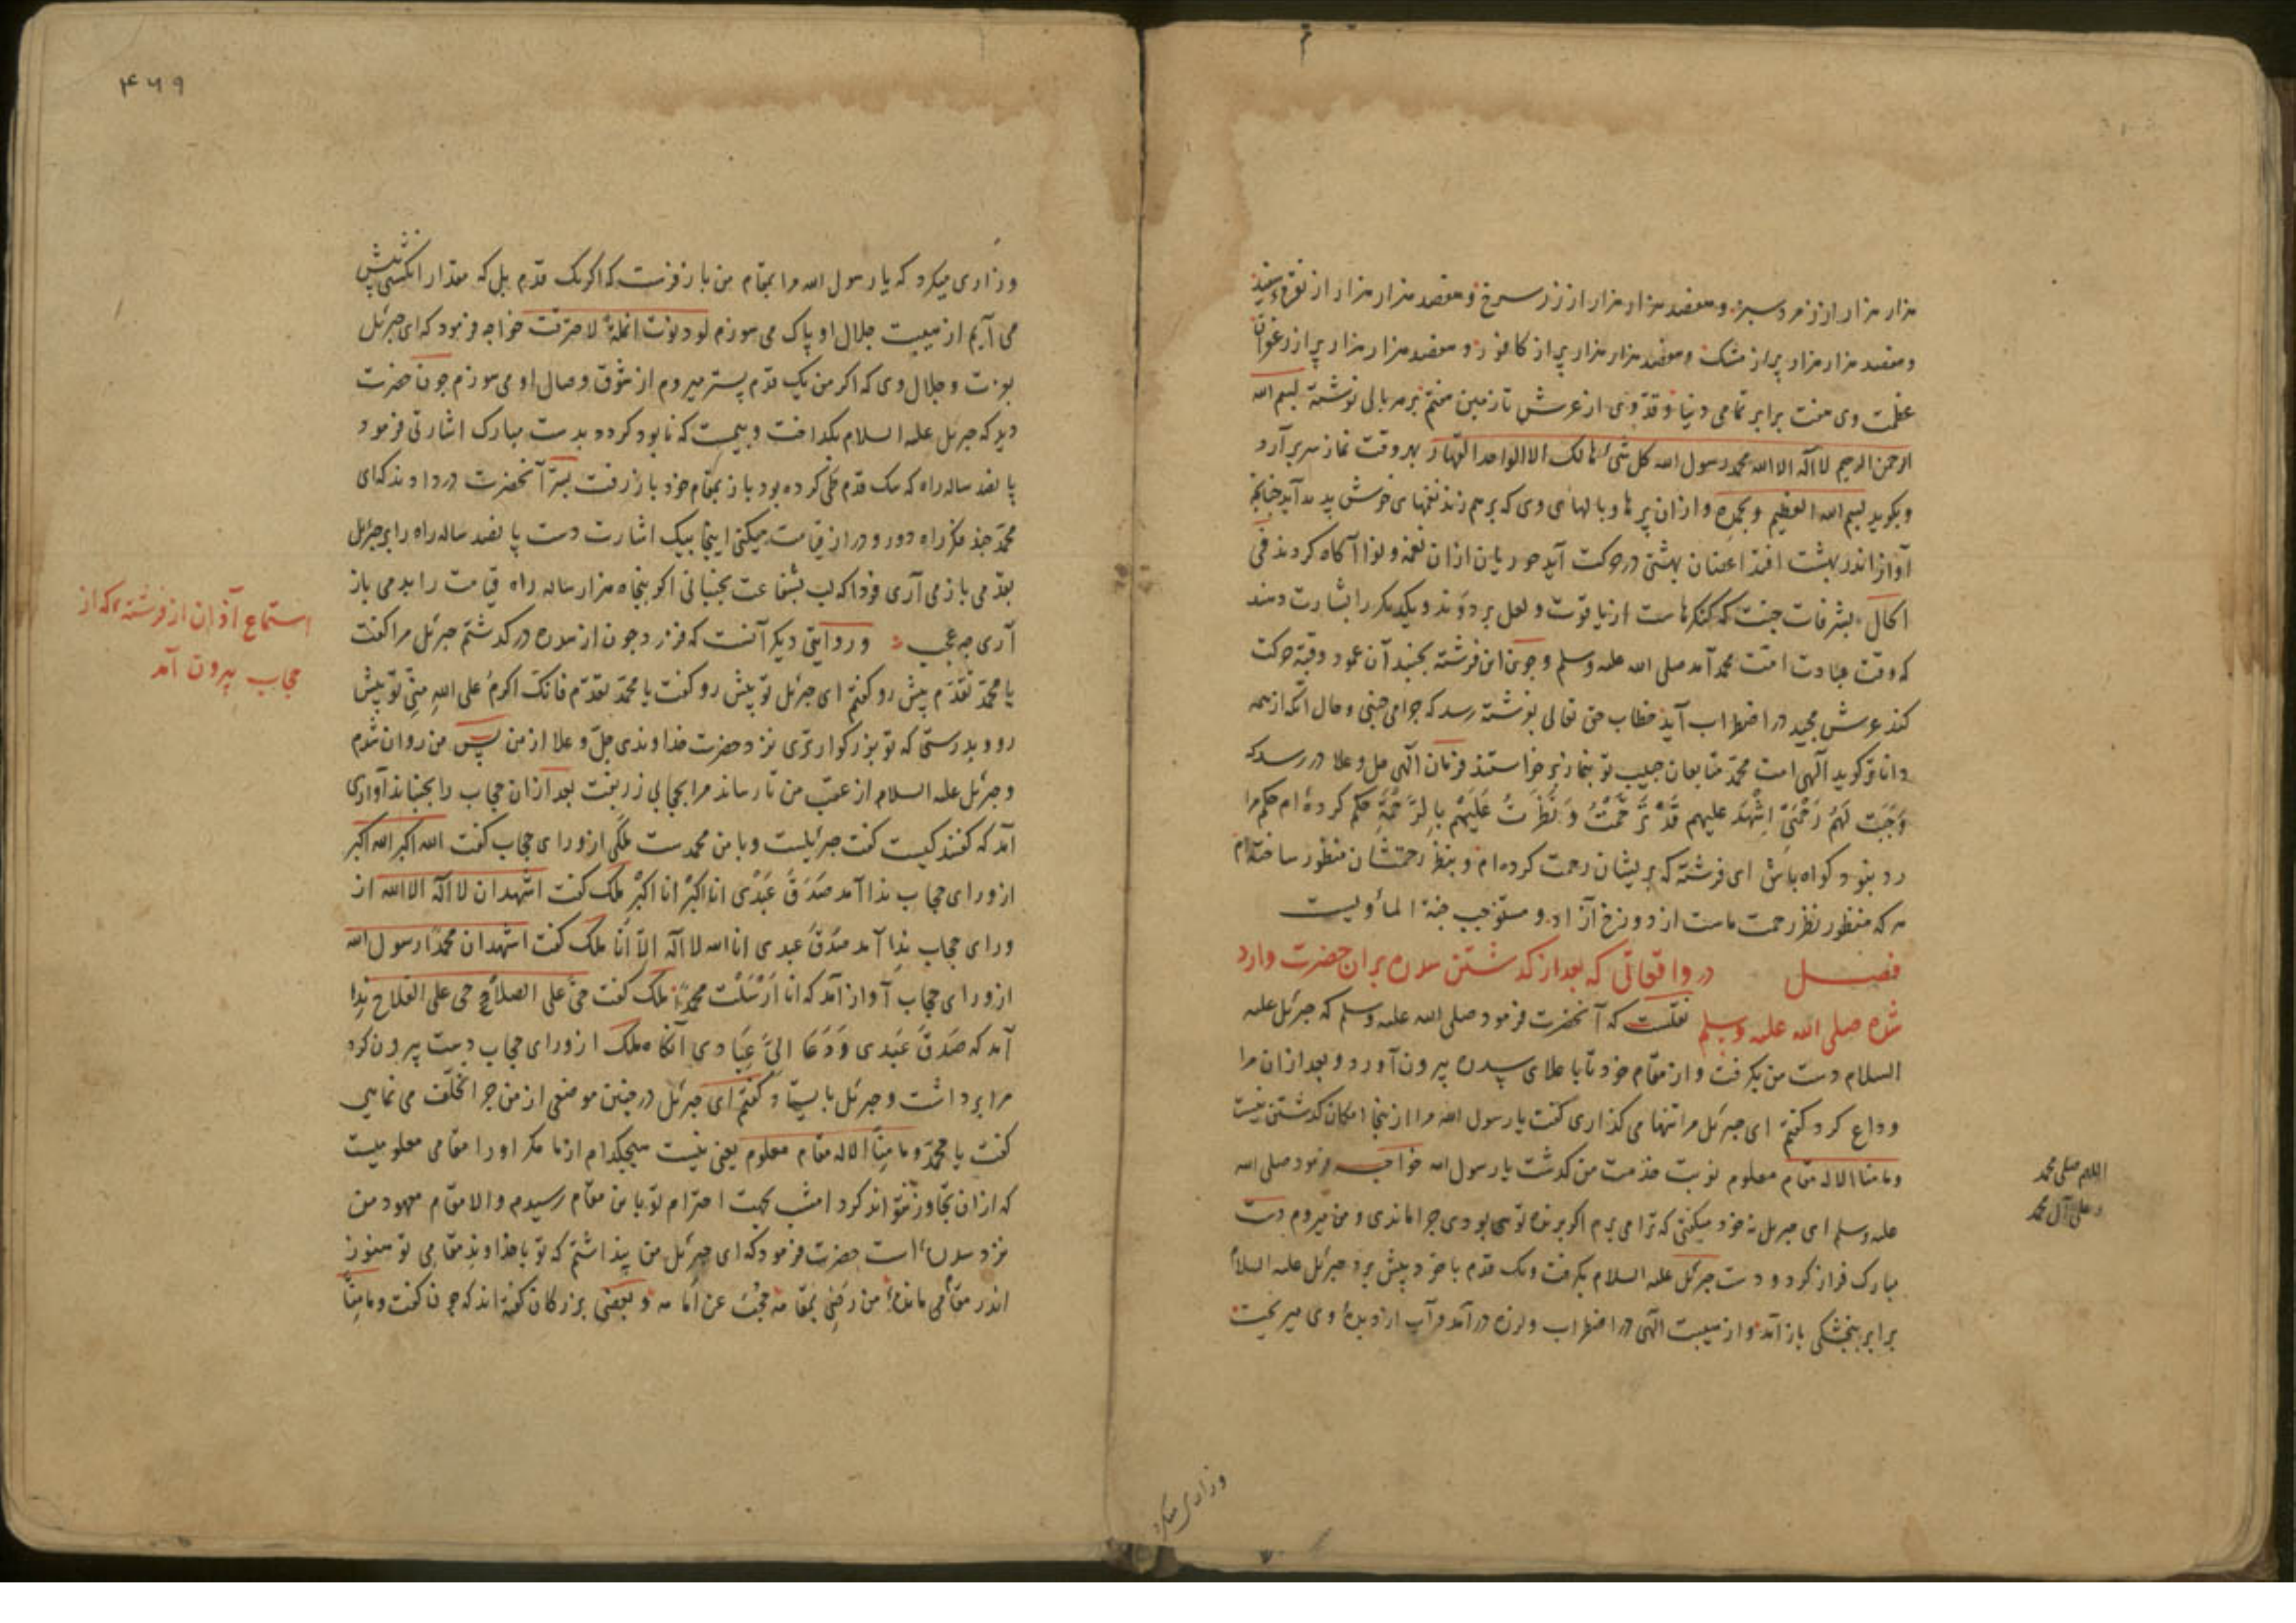 هزار هزار از زمرد سبز و هفصد هزار هزار از زر سرخ و هفصد هزار هزار از نقره سفید
و هفصد هزار هزار پر از مشک و هفصد هزار هزار پر از کافور و هفصد هزار هزار پر از زعفران
عظمت وی هفت برابر تمامی دنیا و قد وی از عرش تا زمین هفتم بر هر بالی نوشته بسم الله
الرحمن الرحیم لا اله الا الله محمد رسول الله کل شیء هالک الا الواحد القهار بهر وقت نماز سر بر آرد
و بکوید بسم الله العظیم و بحمده و از ان پرها و بالهای وی که بر هم زند نغمهای خوش پدید آید چنانچه
آواز اندر بهشت افتد اغصان بهشتی در حرکت آید حوریان از ان نغمه و نوا آکاه کردند فی
الحال بشرفات جنت که کنکرهاست از یاقوت و لعل بر دوند و یکدیکر را بشارت دهند
که وقت عبادت امت محمد آمد صلی الله علیه وسلم و چون این فرشته بجنبد آن عمود و قبه حرکت
کند عرش مجید در اضطراب آید خطاب حق تعالی بفرشته رسد که چرا می جنبی و حال آنکه از همه
دانا تر کوید الهی امت محمد متابعان حبیب تو بنماز بر خواستند فرمان الهی جل و علا در رسد که
وَجَبَت لَهُم رَحْمَتی اِشْهَد علیهم قَدْ تَرَحَّمْتُ وَ نَظَرتُ عَلَیهِم بِالرَّحْمَةِ حکم کرده ام حکم مرا
رد نبود کواه باش ای فرشته که بریشان رحمت کرده ام و بنظر رحمتشان منظور ساخته ام
هر که منظور نظر رحمت ماست از دوزخ آزاد و مستوجب جنة الماویست
فصل در واقعاتی که بعد از کذشتن سدره بران حضرت وارد
شده صلی الله علیه وسلم نقلست که آنحضرت فرمود صلی الله علیه وسلم که جبرئل علیه
السلام دست من بکرفت و از مقام خود تا با علای سدره بیرون آورد و بعد از ان مرا
وداع کرد کفتم ای جبرئل مرا تنها می کذاری کفت یا رسول الله مرا از ینجا امکان کذشتن نیست
و ما منا الا له مقام معلوم نوبت خدمت من کذشت یا رسول الله خواجه فرمود صلی الله
علیه وسلم ای جبرئل نه خود میکفتی که ترا می برم اکر برنده تو می بودی چرا ماندی و من میروم دست
مبارک فراز کرد و دست جبرئل علیه السلام بکرفت و یک قدم با خود پیش برد جبرئل علیه السلام
برابر بنجشکی باز آمد و از هیبت الهی در اضطراب و لرزه در آمد و آب از دیدهٔ وی میریخت
اللهم صلی محمد
و علی آل محمد
وزاری میکرد
۴۶۹
وزاری میکرد که یا رسول الله مرا بمقام من باز فرست که اکر یک قدم بل که مقدار انکشتی پیش
می آیم از هیبت جلال او پاک می سوزم لو دنوت انملة لاحترقت خواجه فرمود که ای جبرئل
بعزت و جلال وی که اکر من یک قدم پستر میروم از شوق وصال او می سوزم چون حضرت
دید که جبرئل علیه السلام بکداخت و بیمست که نابود کردد بدست مبارک اشارتی فرمود
پانصد ساله راه که یک قدم طی کرده بود باز بمقام خود باز رفت بسر آنحضرت در دادند که ای
محمد چند فکر راه دور و دراز قیامت میکنی اینجا بیک اشارت دست پانصد ساله راه را بر جبرئل
بقدمی باز می آری فردا که لب بشفاعت بجنبانی اکر پنجاه هزار ساله راه قیامت را بدمی باز
آری چه عجب و روایتی دیکر آنست که فرمود چون از سدره در کذشتم جبرئل مرا کفت
یا محمد تقدم پیش رو کفتم ای جبرئل تو پیش رو کفت یا محمد تقدم فانک اکرم علی الله منی تو پیش
رو و بدرستی که تو بزرکوارتری نزد حضرت خداوندی جل و علا از من پس من روان شدم
و جبرئل علیه السلام از عقب من تا رساند مرا بحجابی زربفت بعد از ان حجاب را بجنباند آوازی
آمد که کفتند کیست کفت جبرئیلست و با من محمدست ملکی از ورای حجاب کفت الله اکبر الله اکبر
از ورای حجاب ندا آمد صَدَقَ عَبْدی انا اکبر انا اکبر ملک کفت اشهد ان لا اله الا الله از
ورای حجاب ندا آمد صدق عبدی انا الله لا اله الا انا ملک کفت اشهد ان محمدا رسول الله
از ورای حجاب آواز آمد که انا ارسلت محمدا ملک کفت حی علی الصلاح حی علی الفلاح ندا
آمد که صدق عبدی وَدَعَا اِلیَّ عِبَادی آنکاه ملک از ورای حجاب دست بیرون کرد
مرا برداشت و جبرئل بایستاد کفتم ای جبرئل در چنین موضعی از من چرا تخلف می نمایی
کفت یا محمد و ما منا الا له مقام معلوم یعنی نیست هیچکدام از ما مکر او را مقامی معلومیست
که از ان تجاوز نتواند کرد امشب بجهت احترام تو باین مقام رسیدم و الا مقام معهود من
نزد سدره است حضرت فرمود که ای جبرئل من پنداشتم که تو با خداوند مقامی تو هنوز
اندر مقامی مانده من رضی بمقامه حجب عن امامه و بعضی بزرکان کفته اند که چون کفت و ما منا
استماع آذان از فرشته که از
حجاب بیرون آمد